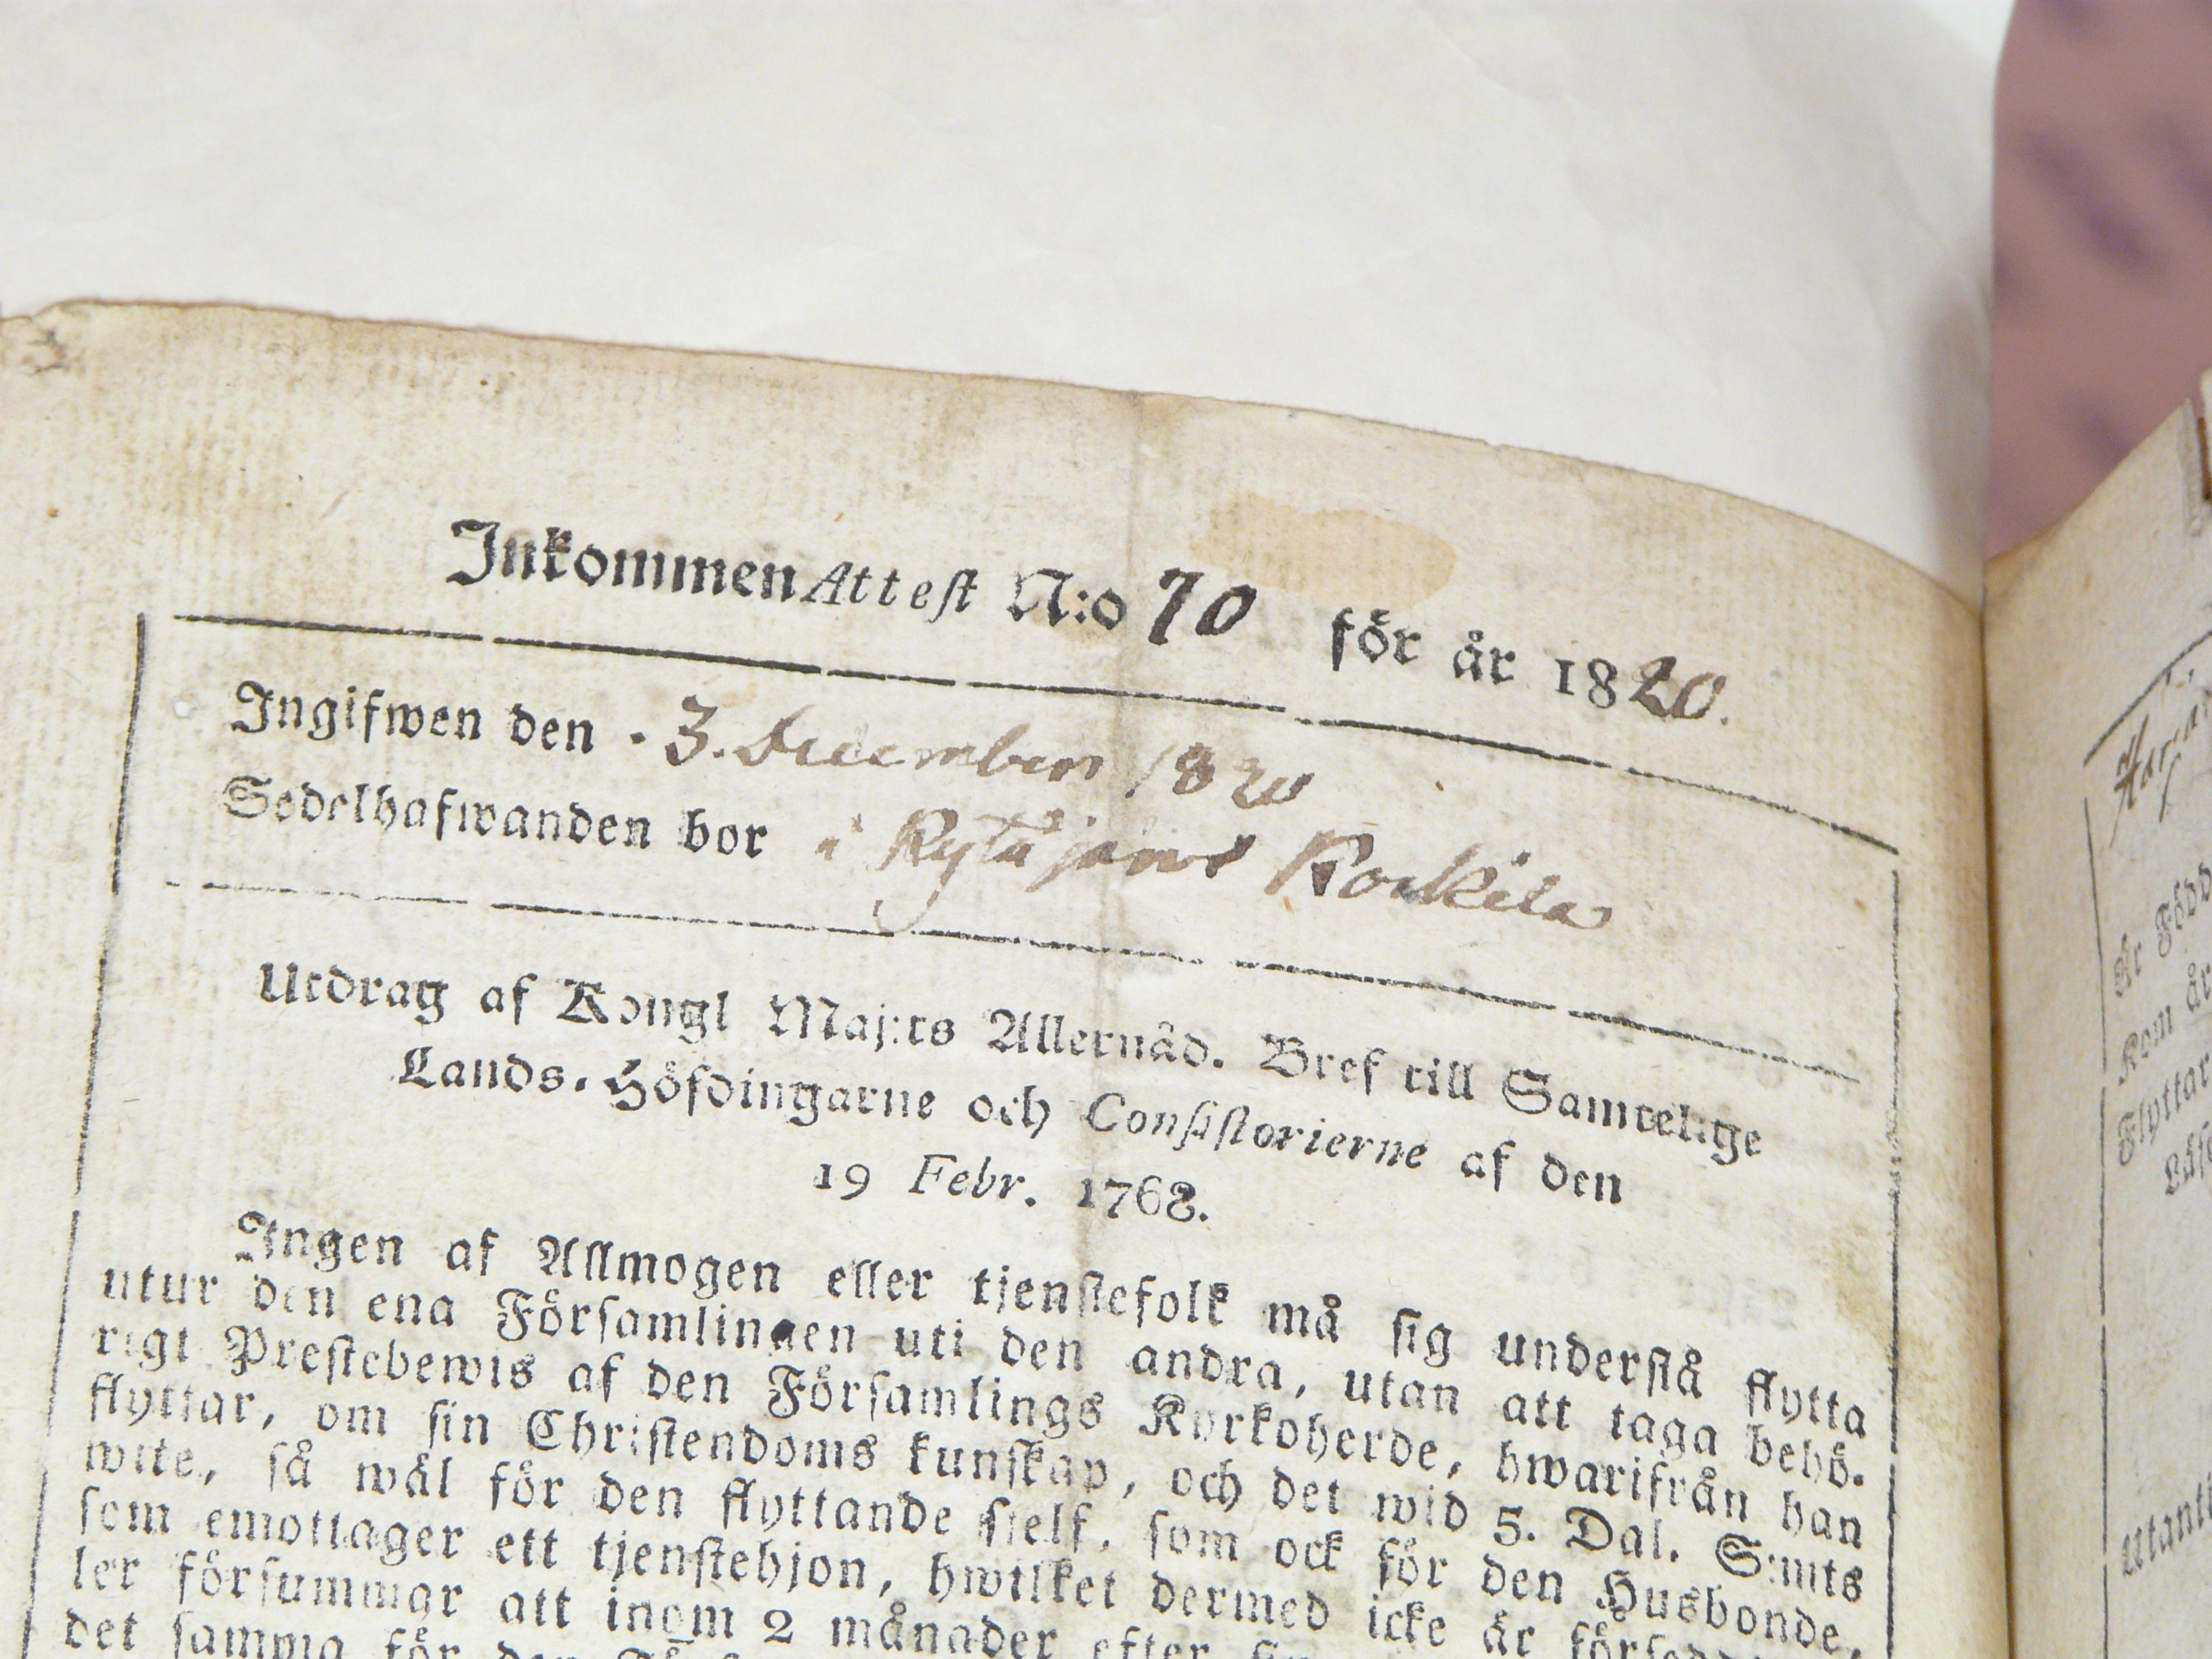 Inkommen Attest N:o 70 för år 1820.
Ingifwen den 3. December 1820
Sedelhafwanden bor i Kytäjärvi Kockila
Utdrag af Kongl Maj:ts Allernåd. Bref till Samtelige
Lands-Höfdingarne och Consistorierne af den
19 Febr. 1768.
Ingen af Allmogen eller tjenstefolk må sig understå flytta
utur den ena Församlingen uti den andra, utan att taga behö-
rigt Prestebewis af den Församlings Kyrkoherde, hwarifrån han
flyttar, om sin Christendoms kunskap, och det wid 5. Dal. S:mts
wite, så wäl för den flyttande sjelf, som ock för den Husbonde,
som emottager ett tjenstehjon, hwilket dermed icke är
ler försummar att inom 2 månader efter
det samma för
är Född
Kom år
Flyttar